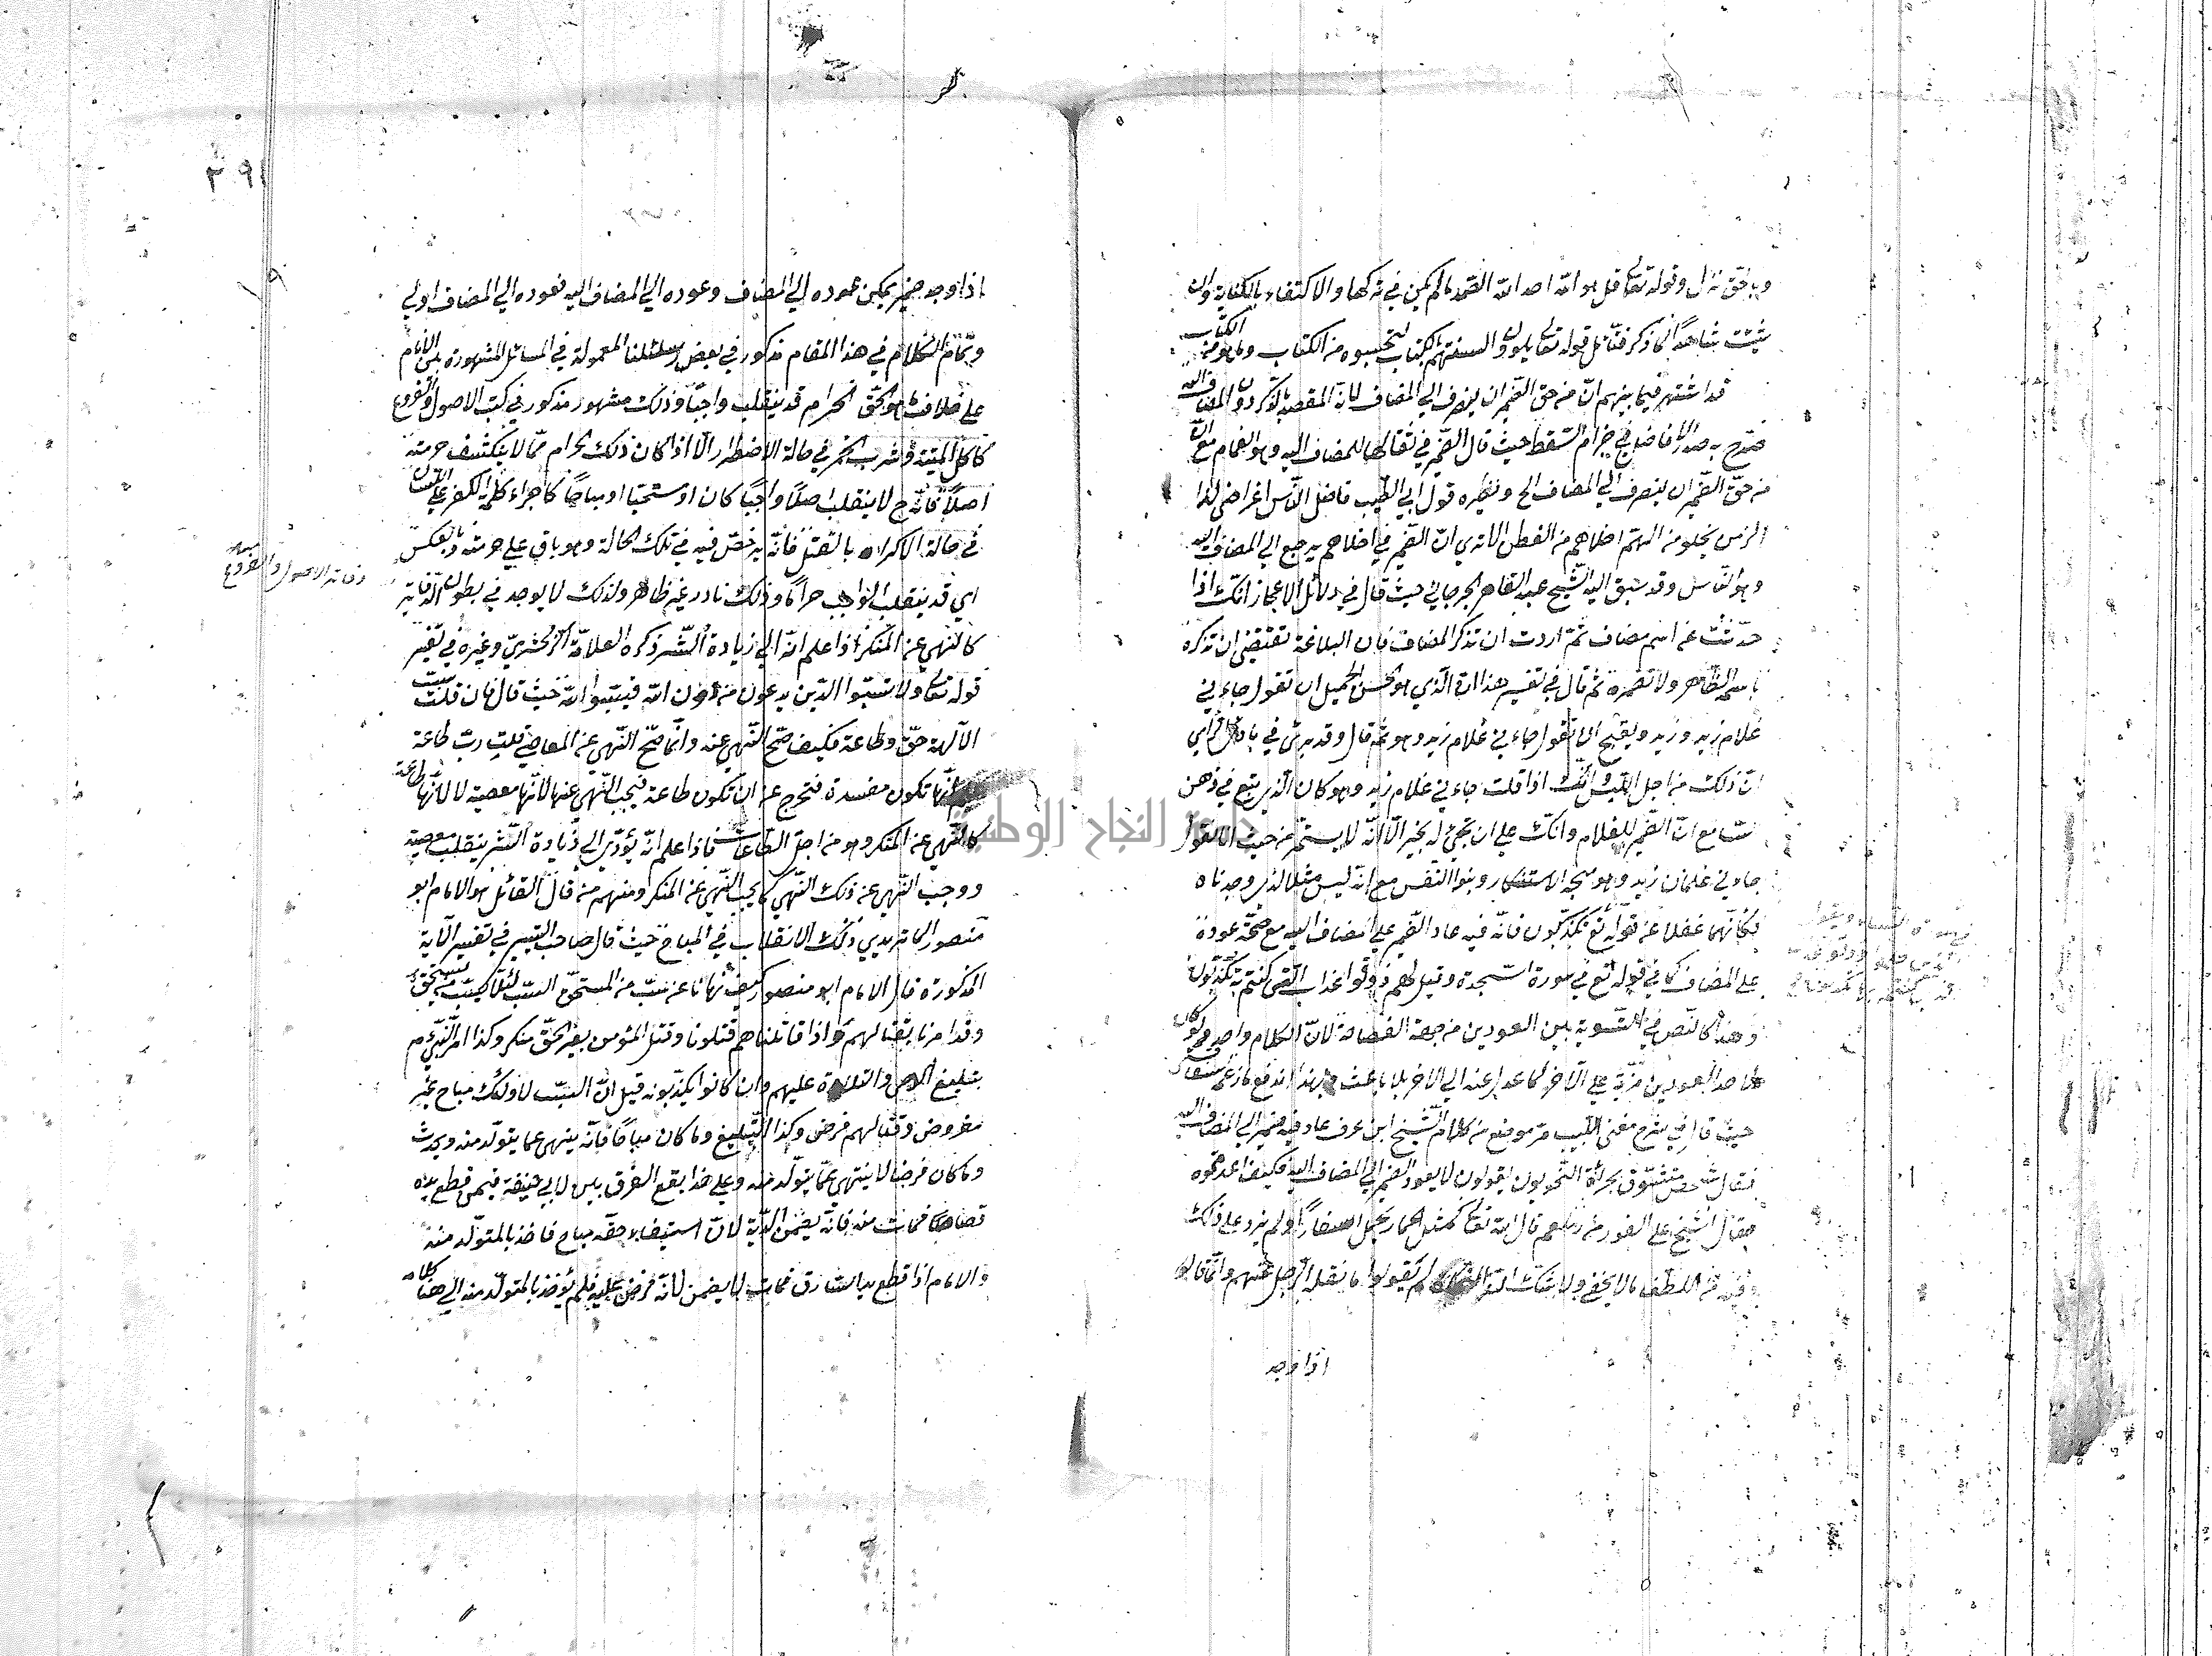 وبالحق نزل وقوله تعا قل هو الله احد الله الصمد ما لم يكن في تركها والاكتفاء بالكناية وان
شئت شاهدا لما ذكر فتأمل قوله تعا يلوون السنتهم بالكتاب لتحسبوه من الكتاب وما هو من الكتاب
قد اشتهر فيما بينهم ان من حق الضمير ان ينصرف الى المضاف لانه المقصود بالذكر دون المضاف اليه
صرح به صدر الافاضل في ضرام السقط حيث قال الضمير في ثقالها للمضاف اليه وهو الغمام مع ان
من حق الضمير ان ينصرف الى المضاف الخ ونظيره قول ابي الطيب فاضل الناس اغراض لذا
الزمن يخلو من الهم اخلاهم من الفطن الا ترى ان الضمير في اخلاهم يرجع الى المضاف اليه
وهو الناس وقد سبق اليه الشيخ عبد القاهر الجرجاني حيث قال في دلائل الاعجاز انك اذا
حدثت عن اسم مضاف ثم اردت ان تذكر المضاف فان البلاغة تقتضي ان تذكره
باسمه الظاهر ولا تضمره ثم قال في تفسير هذا ان الذي هو الحسن الجميل ان تقول جاءني
غلام زيد وزيد ويقبح ان تقول جاءني غلام زيد وهو ثم قال وقد يرى في بادئ الرأي
ان ذلك من اجل اللبس انك اذا قلت جاءني غلام زيد وهو كان الذي يقع في ذهن
مع ان الضمير للغلام وانك على ان تجئ له بخبر الا انه لا يستمر من حيث انا نقول
جاءني غلمان زيد وهو فتجد الاستنكار ونبوا النفس مع انه ليس مثل الذي وجدناه
فكأنهما غفلا عن قوله تع تكذبون فانه فيه عاد الضمير على المضاف اليه مع صحة عوده
على المضاف كما في قوله تع في سورة السجدة وقيل لهم ذوقوا عذاب النار الذي كنتم به تكذبون
وهذا كالنص في التسوية بين العودين من جهة الفصاحة لان الكلام واحد ولو كان
لاحد العودين مزية على الآخر لما عدل عنه الى الآخر بلا باعث وبهذا اندفع ما زعم
حيث قال في شرح مغني اللبيب مر موضع من كلام الشيخ ابن عرف عاد فيه ضمير الى المضاف اليه
فقال شخص متشوق بجرأة النحويون يقولون لا يعود الضمير الى المضاف اليه فكيف اعدتموه
فقال الشيخ على الفور قال الله تعا كمثل الحمار يحمل اسفارا ولم يزد على ذلك
وفيه من اللطف ما لا يخفى ولا شك ان النحاة لم يقولوا ما نقله الرجل عنهم وانما قالوا
اذا وجد
٣٩١
اذا وجد ضمير يمكن عوده الى المضاف وعوده الى المضاف اليه فعوده الى المضاف اولى
وتمام الكلام في هذا المقام مذكور في بعض رسائلنا المعمولة في المسائل المشهورة بين الانام
على خلاف ما هو الحق الحرام قد ينقلب واجبا وذلك مشهور مذكور في كتب الاصول والفروع
كاكل الميتة وشرب الخمر في حالة الاضطرار الا اذا كان ذلك الحرام مما لا ينكشف حرمته
اصلا فانه ح لا ينقلب اصلا واجبا كان او مستحبا او مباحا كاجراء كلمة الكفر على اللسان
في حالة الاكراه بالقتل فانه يرخص فيه في تلك الحالة وهو باق على حرمته وبالعكس
اي قد ينقلب الواجب حراما وذلك نادر غير ظاهر ولذلك لا يوجد في بطون الدفاتر
دفاتر الاصول والفروع
كالنهي عن المنكر اذا علم انه الى زيادة الشر ذكره العلامة الزمخشري وغيره في تفسير
قوله تعا ولا تسبوا الذين يدعون من دون الله فيسبوا الله حيث قال فان قلت سب
الآلهة حق وطاعة فكيف صح النهي عنه وانما صح النهي عن المعاصي قلت رب طاعة
علم انها تكون مفسدة فتخرج عن ان تكون طاعة فيجب النهي عنها لانها معصية لا لانها طاعة
كالنهي عن المنكر وهو من اجل الطاعات فاذا علم انه يؤدي الى زيادة الشر ينقلب معصية
ووجب النهي عن ذلك النهي كما يجب النهي عن المنكر ومنهم من قال القائل هو الامام ابو
منصور الماتريدي ذلك الانقلاب في المباح حيث قال صاحب التيسير في تفسير الآية
المذكورة قال الامام ابو منصور كيف نهانا عن سب من المستحق السب لئلا يسب من لا يستحق
وقد امرنا بقتالهم واذا قاتلناهم قتلونا وقتل المؤمن بغير الحق منكر وكذا امر النبي م
بتبليغ الوحي والتلاوة عليهم وان كانوا يكذبونه قيل ان السب لاولئك مباح غير
مفروض وقتالهم فرض وكذا التبليغ وما كان مباحا فانه ينهى عما يتولد منه ويحدث
وما كان فرضا لا ينتهي عما يتولد منه وعلى هذا يقع الفرق بين لابي حنيفة فيمن قطع يده
قصاصا فمات منه فانه يضمن الدية لان استيفاء حقه مباح فاخذ بالمتولد منه
والامام اذا قطع يد السارق فمات لا يضمن لانه فرض عليه فلم يؤخذ بالمتولد منه الى هنا كلامه
النجاح الوطنية